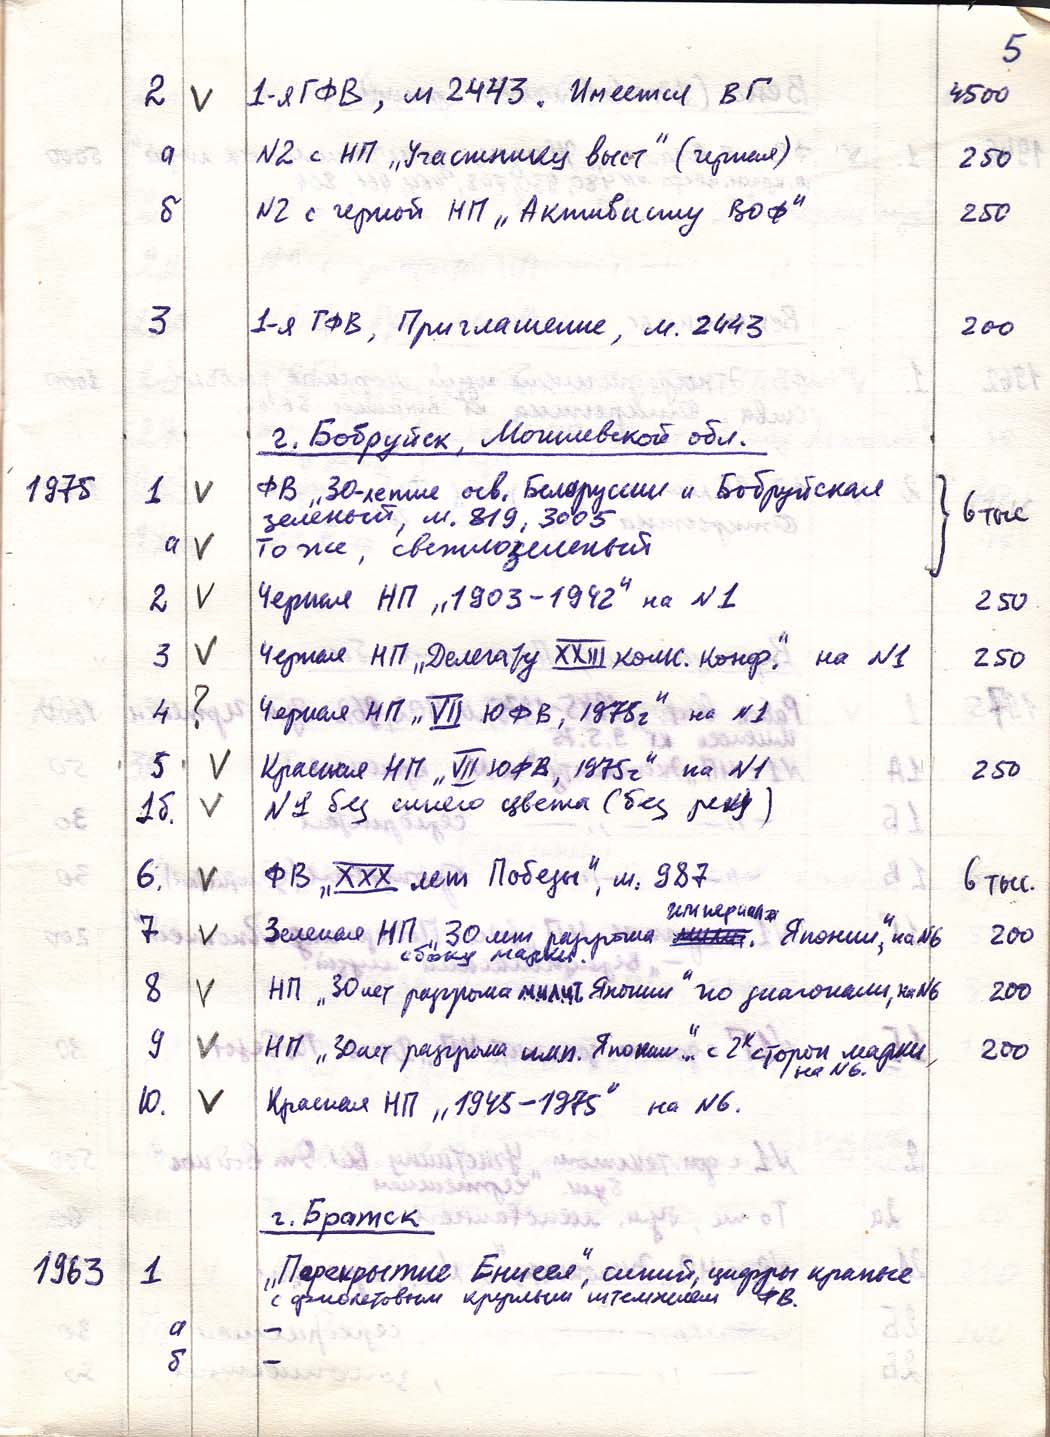 5
2 V 1-я ГФВ, м 2443. Имеется ВГ 4500
а N2 с НП „Участнику выст" (черная) 250
б N2 с черной НП „Активисту ВОФ" 250
3 1-я ГФВ, Приглашение, м. 2443 200
г. Бобруйск, Могилевской обл.
1975 1 V ФВ „30-летие осв. Белоруссии и Бобруйская
зеленый, м. 819, 3005 6 тыс
а V То же, светлозеленый
2 V Черная НП „1903-1942" на N1 250
3 V Черная НП „Делегату XXIII комс. конф." на N1 250
4 ? Черная НП „VII ЮФВ, 1975г" на N1
5 V Красная НП „VII ЮФВ, 1975г" на N1 250
1б. V N1 без синего цвета (без )
6. V ФВ „XXX лет Победы", м. 987 6 тыс.
империал.
7 V Зеленая НП „30 лет разгрома Японии", на N6 200
сбоку марки.
8 V НП „30 лет разгрома милит Японии" по диагонали, на N6 200
9 V НП „30 лет разгрома имп. Японии.." с 2х сторон марки, 200
на N6.
10. V Красная НП „1945-1975" на N6.
г. Братск
1963 1 „Перекрытие Енисея", синий, цифры красные
с фиолетовым круглым штемпелем ФВ.
а –
б –